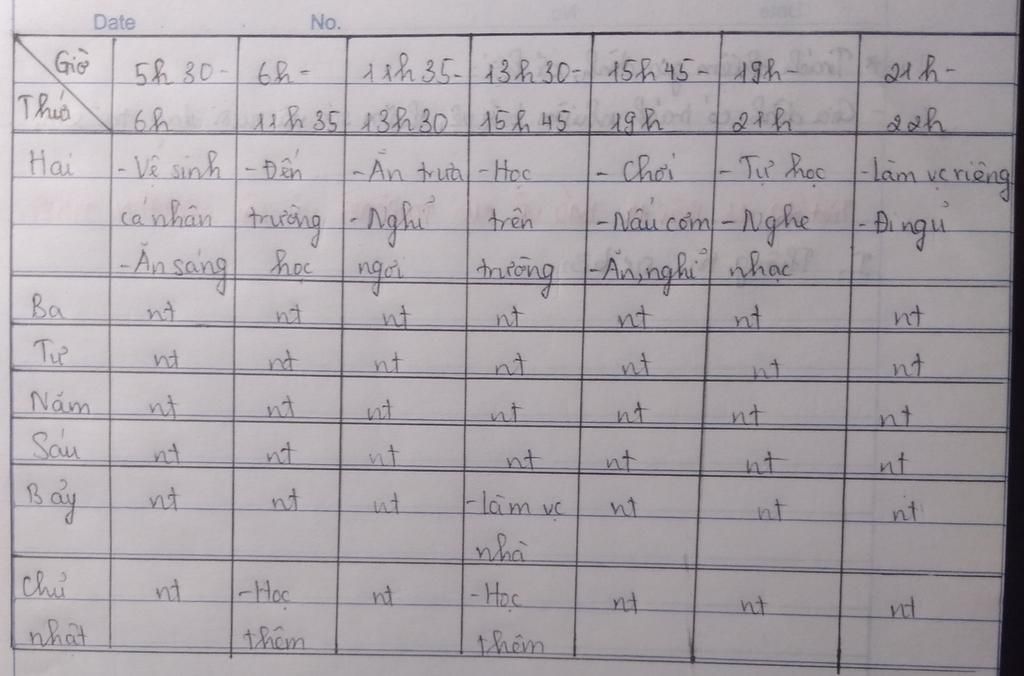 Date No.
Giờ 5h30- 6h- 11h35- 13h30- 15h45- 19h- 21h-
Thứ 6h 11h35 13h30 15h45 19h 21h 22h
Hai - Vệ sinh - Đến - Ăn trưa - Học - Chơi - Tự học - Làm vc riêng
cá nhân trường - Nghỉ trên - Nấu cơm - Nghe - Đi ngủ
- Ăn sáng học ngơi trường - Ăn, nghỉ nhạc
Ba nt nt nt nt nt nt nt
Tư nt nt nt nt nt nt nt
Năm nt nt nt nt nt nt nt
Sáu nt nt nt nt nt nt nt
Bảy nt nt nt - Làm vc nt nt nt
nhà
Chủ nt - Học nt - Học nt nt nt
nhật thêm thêm